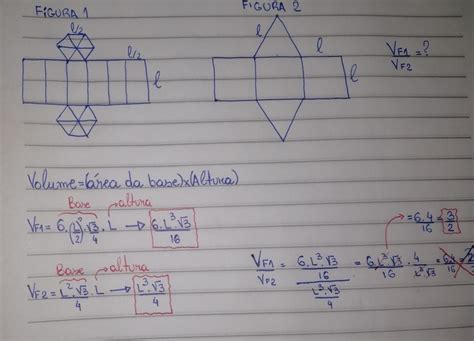 FIGURA 1
FIGURA 2
l/2
l/2
l
l
l
l
VF1 = ?
VF2
Volume = (área da base) x (Altura)
Base altura
VF1 = 6.(L/2)².√3/4 . L → 6.L³.√3/16
= 6.4/16 = 3/2
Base altura
VF2 = L².√3/4 . L → L³.√3/4
VF1/VF2 = 6.L³.√3/16 / L³.√3/4 = 6.L³.√3/16 . 4/L³.√3 = 6.4/16